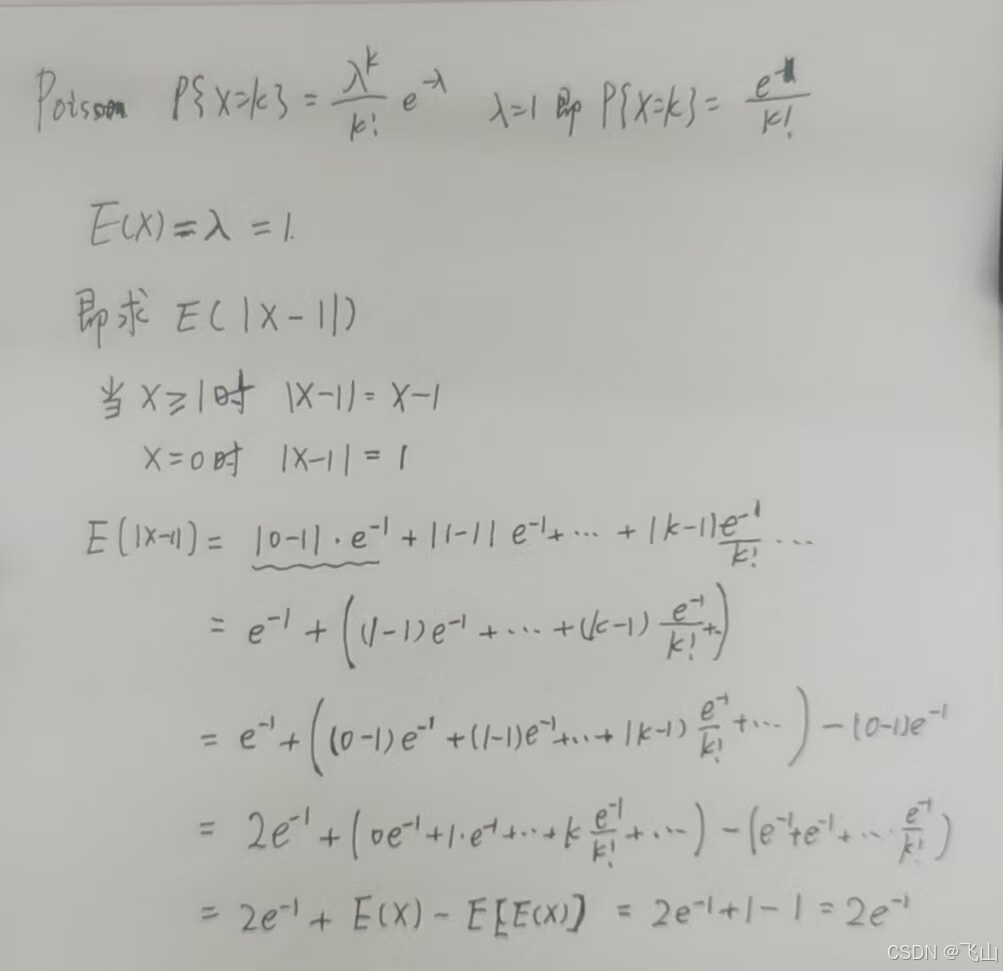 Poisson P{X=k} = λ^k/k! e^-λ λ=1 即 P{X=k} = e^-1/k!
E(X) = λ = 1.
即求 E(|X-1|)
当 X≥1时 |X-1| = X-1
X=0时 |X-1| = 1
E(|X-1|) = |0-1|·e^-1 + |1-1| e^-1 + ··· + |k-1| e^-1/k! ···
= e^-1 + ((1-1)e^-1 + ··· + (k-1) e^-1/k! + )
= e^-1 + ((0-1)e^-1 + (1-1)e^-1 + ··· + (k-1) e^-1/k! + ···) - (0-1)e^-1
= 2e^-1 + (0e^-1 + 1·e^-1 + ··· + k e^-1/k! + ···) - (e^-1 + e^-1 + ··· e^-1/k!)
= 2e^-1 + E(X) - E[E(X)] = 2e^-1 + 1 - 1 = 2e^-1
CSDN @飞山